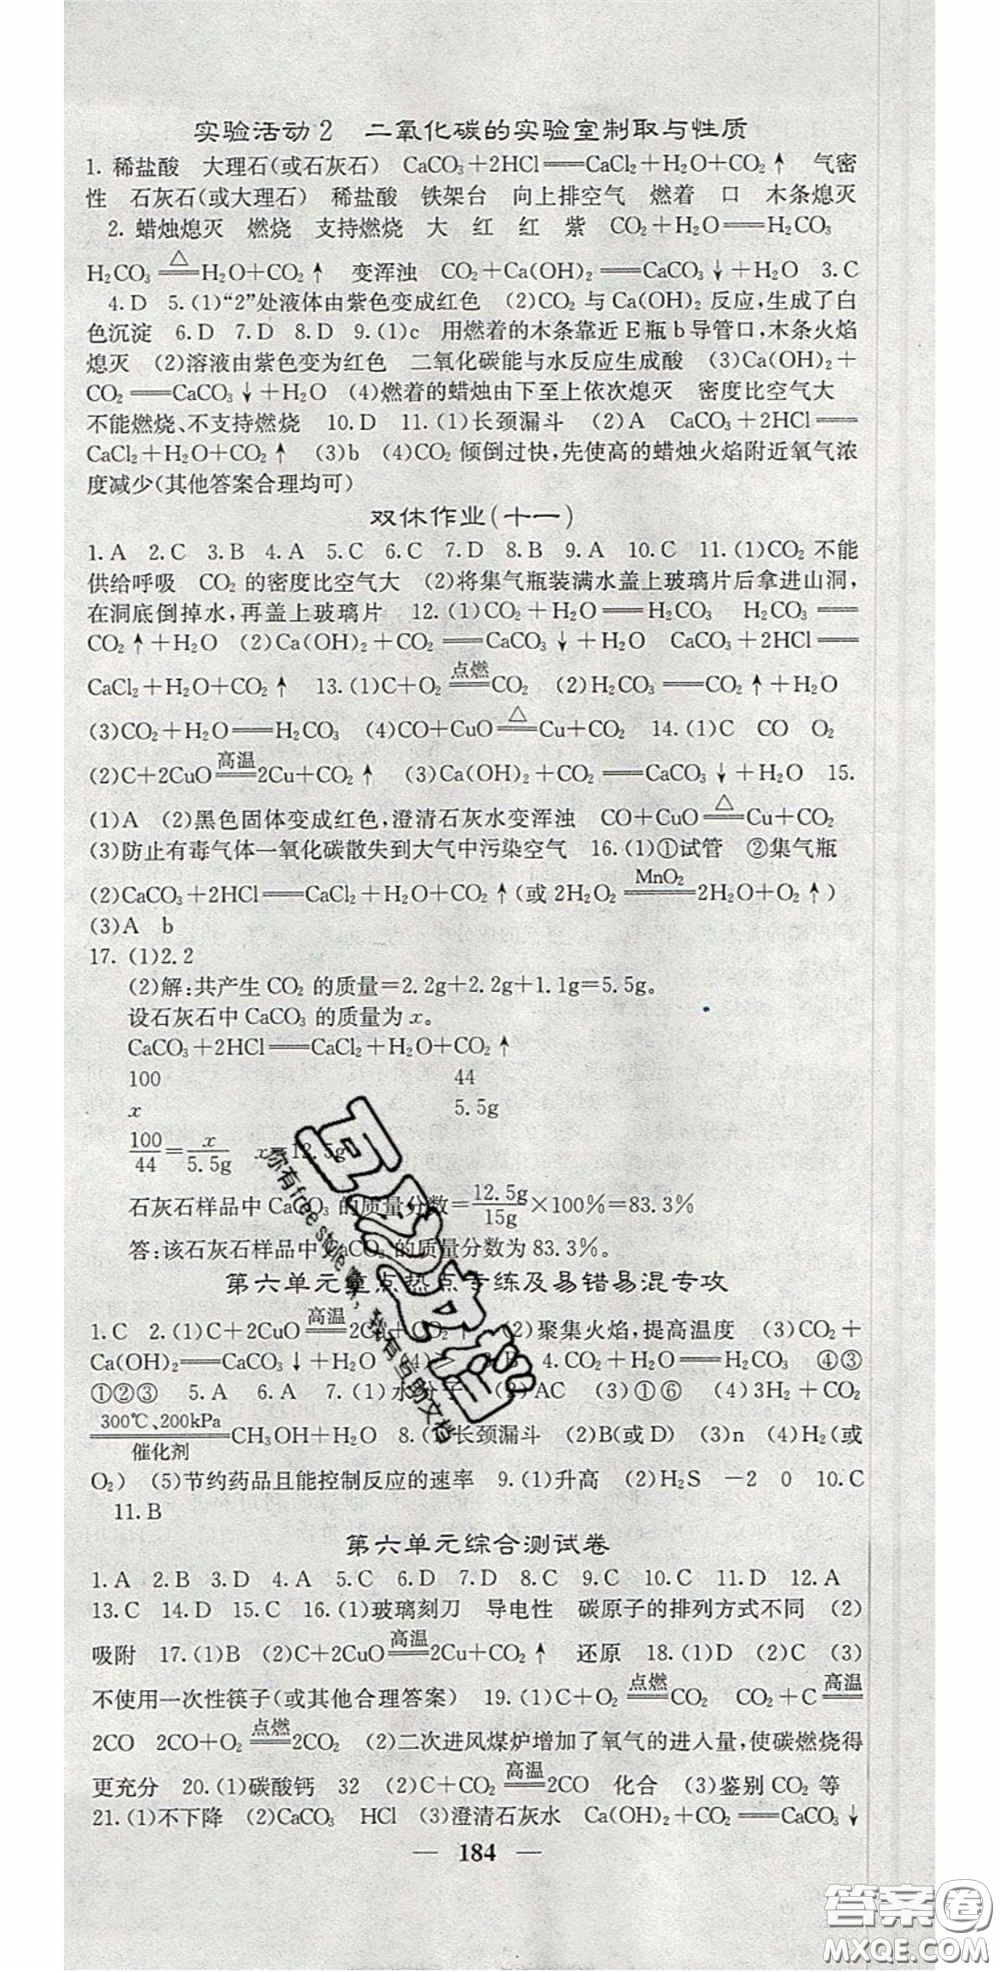 实验活动2 二氧化碳的实验室制取与性质
1. 稀盐酸 大理石(或石灰石) CaCO₃+2HCl══CaCl₂+H₂O+CO₂↑ 气密
性 石灰石(或大理石) 稀盐酸 铁架台 向上排空气 燃着 口 木条熄灭
2. 蜡烛熄灭 燃烧 支持燃烧 大 红 红 紫 CO₂+H₂O══H₂CO₃
H₂CO₃ ≜(△) H₂O+CO₂↑ 变浑浊 CO₂+Ca(OH)₂══CaCO₃↓+H₂O 3. C
4. D 5. (1)“2”处液体由紫色变成红色 (2)CO₂ 与 Ca(OH)₂ 反应,生成了白
色沉淀 6. D 7. D 8. D 9. (1)c 用燃着的木条靠近 E 瓶 b 导管口,木条火焰
熄灭 (2)溶液由紫色变为红色 二氧化碳能与水反应生成酸 (3)Ca(OH)₂+
CO₂══CaCO₃↓+H₂O (4)燃着的蜡烛由下至上依次熄灭 密度比空气大
不能燃烧、不支持燃烧 10. D 11. (1)长颈漏斗 (2)A CaCO₃+2HCl══
CaCl₂+H₂O+CO₂↑ (3)b (4)CO₂ 倾倒过快,先使高的蜡烛火焰附近氧气浓
度减少(其他答案合理均可)
双休作业(十一)
1. A 2. C 3. B 4. A 5. C 6. C 7. D 8. B 9. A 10. C 11. (1)CO₂ 不能
供给呼吸 CO₂ 的密度比空气大 (2)将集气瓶装满水盖上玻璃片后拿进山洞,
在洞底倒掉水,再盖上玻璃片 12. (1)CO₂+H₂O══H₂CO₃ H₂CO₃══
CO₂↑+H₂O (2)Ca(OH)₂+CO₂══CaCO₃↓+H₂O CaCO₃+2HCl══
CaCl₂+H₂O+CO₂↑ 13. (1)C+O₂ 点燃══ CO₂ (2)H₂CO₃══CO₂↑+H₂O
(3)CO₂+H₂O══H₂CO₃ (4)CO+CuO △══ Cu+CO₂ 14. (1)C CO O₂
(2)C+2CuO 高温══ 2Cu+CO₂↑ (3)Ca(OH)₂+CO₂══CaCO₃↓+H₂O 15.
(1)A (2)黑色固体变成红色,澄清石灰水变浑浊 CO+CuO △══ Cu+CO₂
(3)防止有毒气体一氧化碳散失到大气中污染空气 16. (1)①试管 ②集气瓶
(2)CaCO₃+2HCl══CaCl₂+H₂O+CO₂↑(或 2H₂O₂ MnO₂══ 2H₂O+O₂↑)
(3)A b
17. (1)2.2
(2)解:共产生 CO₂ 的质量=2.2g+2.2g+1.1g=5.5g。
设石灰石中 CaCO₃ 的质量为 x。
CaCO₃+2HCl══CaCl₂+H₂O+CO₂↑
100 44
x 5.5g
100/44=x/5.5g x=12.5g
石灰石样品中 CaCO₃ 的质量分数=12.5g/15g×100%=83.3%
答:该石灰石样品中 CaCO₃ 的质量分数为 83.3%。
第六单元重点热点专练及易错易混专攻
1. C 2. (1)C+2CuO 高温══ 2Cu+CO₂↑ (2)聚集火焰,提高温度 (3)CO₂+
Ca(OH)₂══CaCO₃↓+H₂O (4) B 4. CO₂+H₂O══H₂CO₃ ④③
①②③ 5. A 6. A 7. (1)水分子 (2)AC (3)①⑥ (4)3H₂+CO₂
300℃、200kPa══催化剂 CH₃OH+H₂O 8. (1)长颈漏斗 (2)B(或 D) (3)n (4)H₂(或
O₂) (5)节约药品且能控制反应的速率 9. (1)升高 (2)H₂S −2 0 10. C
11. B
第六单元综合测试卷
1. A 2. B 3. D 4. A 5. C 6. D 7. D 8. C 9. C 10. C 11. D 12. A
13. C 14. D 15. C 16. (1)玻璃刻刀 导电性 碳原子的排列方式不同 (2)
吸附 17. (1)B (2)C+2CuO 高温══ 2Cu+CO₂↑ 还原 18. (1)D (2)C (3)
不使用一次性筷子(或其他合理答案) 19. (1)C+O₂ 点燃══ CO₂ CO₂+C 高温══
2CO 2CO+O₂ 点燃══ 2CO₂ (2)二次进风煤炉增加了氧气的进入量,使碳燃烧得
更充分 20. (1)碳酸钙 32 (2)C+CO₂ 高温══ 2CO 化合 (3)鉴别 CO₂ 等
21. (1)不下降 (2)CaCO₃ HCl (3)澄清石灰水 Ca(OH)₂+CO₂══CaCO₃↓
— 184 —
答案圈
MXQE.COM